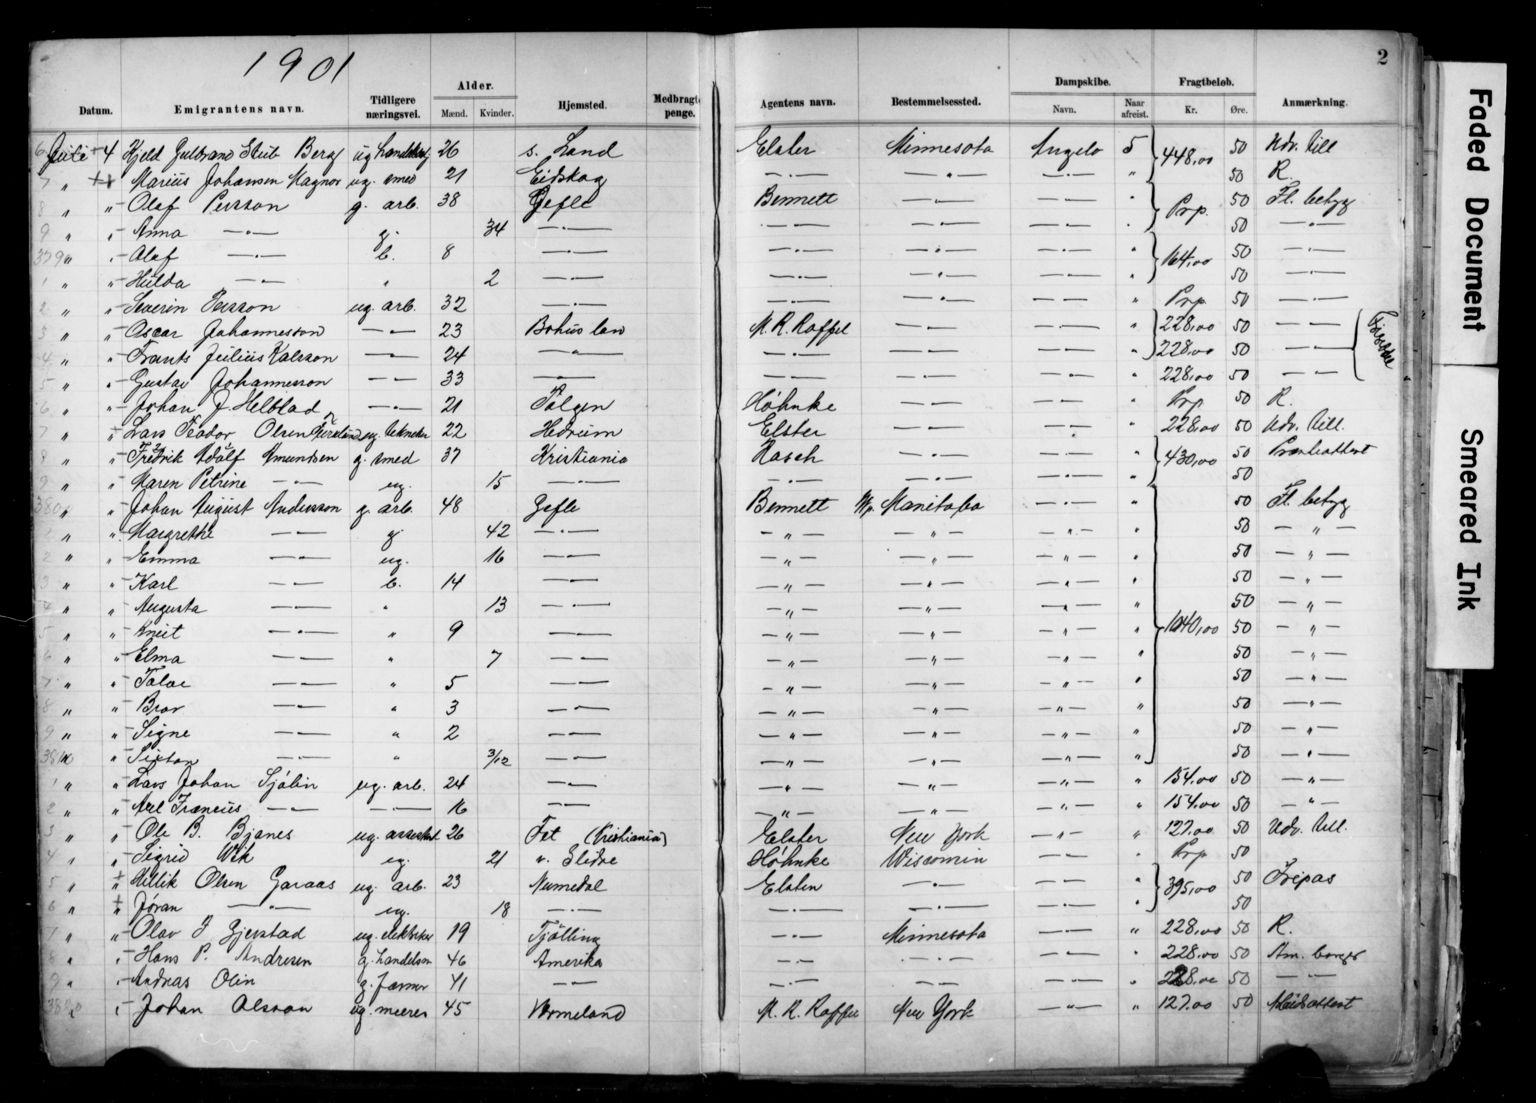 1901
2
Datum. Emigrantens navn. Tidligere næringsvei. Alder. Mænd. Kvinder. Hjemsted. Medbragte penge. Agentens navn. Bestemmelsessted. Dampskibe. Navn. Naar afreist. Fragtbeløb. Kr. Øre. Anmærkning.
4 Berg ug. 26 s. Land Elster Minnesota Angelo 5 448,00 50 Udv. till
" Marius Johansen Magnor ug. smed 21 Eidskog — " — — " — — " — " 50 R.
" " Olaf Persson g. arb. 38 Gefle Bennett — " — — " — " Prp. 50 Fl. betyg
" " Anna — " — g. 34 — " — — " — — " — — " — " 50 — " —
" " Olaf — " — b. 8 — " — — " — — " — — " — " 164,00 50 — " —
" " Hulda — " — " 2 — " — — " — — " — — " — " 50 — " —
" " Severin Persson ug. arb. 32 — " — — " — — " — — " — " Prp. 50 — " —
" " Oscar Johannesson — " — 23 Bohus län M. R. Roffel — " — — " — " 228,00 50 — " —
" " Frants Julius Karsson — " — 24 — " — — " — — " — — " — " 228,00 50 — " —
" " Gustav Johannesson — " — 33 — " — — " — — " — — " — " 228,00 50 — " —
" " Johan J. Helblad — " — 21 Høhnke — " — — " — " Prp 50 R.
" " Lars Teodor Olsen ug. tekniker 22 Hedrum Elster — " — — " — " 228,00 50 Udv. till.
" " Fredrik Adolf Amundsen g. smed 37 Kristiania Rasch — " — — " — " 430,00 50
" " Maren Petrine — " — ug. 15 — " — — " — — " — — " — " 50
" " Johan August Andersson g. arb. 48 Gefle Bennett Wp. Manitoba — " — " 50 Fl. betyg
" " Margrethe — " — g 42 — " — — " — — " — — " — " 50 — " —
" " Emma — " — ug. 16 — " — — " — — " — — " — " 50 — " —
" " Karl — " — b. 14 — " — — " — — " — — " — " 50 — " —
" " Augusta — " — " 13 — " — — " — — " — — " — " 50 — " —
" " Knut — " — " 9 — " — — " — — " — — " — " 1640,00 50 — " —
" " Elma — " — " 7 — " — — " — — " — — " — " 50 — " —
" " — " — " 5 — " — — " — — " — — " — " 50 — " —
" " Bror — " — " 3 — " — — " — — " — — " — " 50 — " —
" " Signe — " — " 2 — " — — " — — " — — " — " 50 — " —
" " Sixten — " — " 3/12 — " — — " — — " — — " — " 50 — " —
" " Lars Johan Sjölin ug. arb. 24 — " — — " — — " — — " — " 154,00 50 — " —
" " Axel Francius — " — — " — 16 — " — — " — — " — — " — " 154,00 50 — " —
" " Ole B. Bjanes ug. 26 Fet (Kristiania) Elster New York — " — " 127,00 50 Udv. till.
" " Sigrid Wik ug. 21 v. Slidre Høhnke Wisconsin — " — " Prp 50
" " Hellik Olsen Garaas ug. arb. 23 Numedal Elsten — " — — " — " 395,00 50 Fripas
" " Jøran — " — ug. 18 — " — — " — — " — — " — " 50
" " Olav J. Gjerstad ug. 19 Tjølling — " — Minnesota — " — " 228,00 50 R.
" " Hans P. Andresen g. handelsm 46 Amerika — " — — " — — " — " 228,00 50 Am. borger
" " Andreas Olin g. farmer 41 — " — — " — — " — — " — " 228,00 50 — " —
" " Johan Olsson ug. 45 Vermeland M. R. Roffel New York — " — " 127,00 50
Faded Document
Smeared Ink